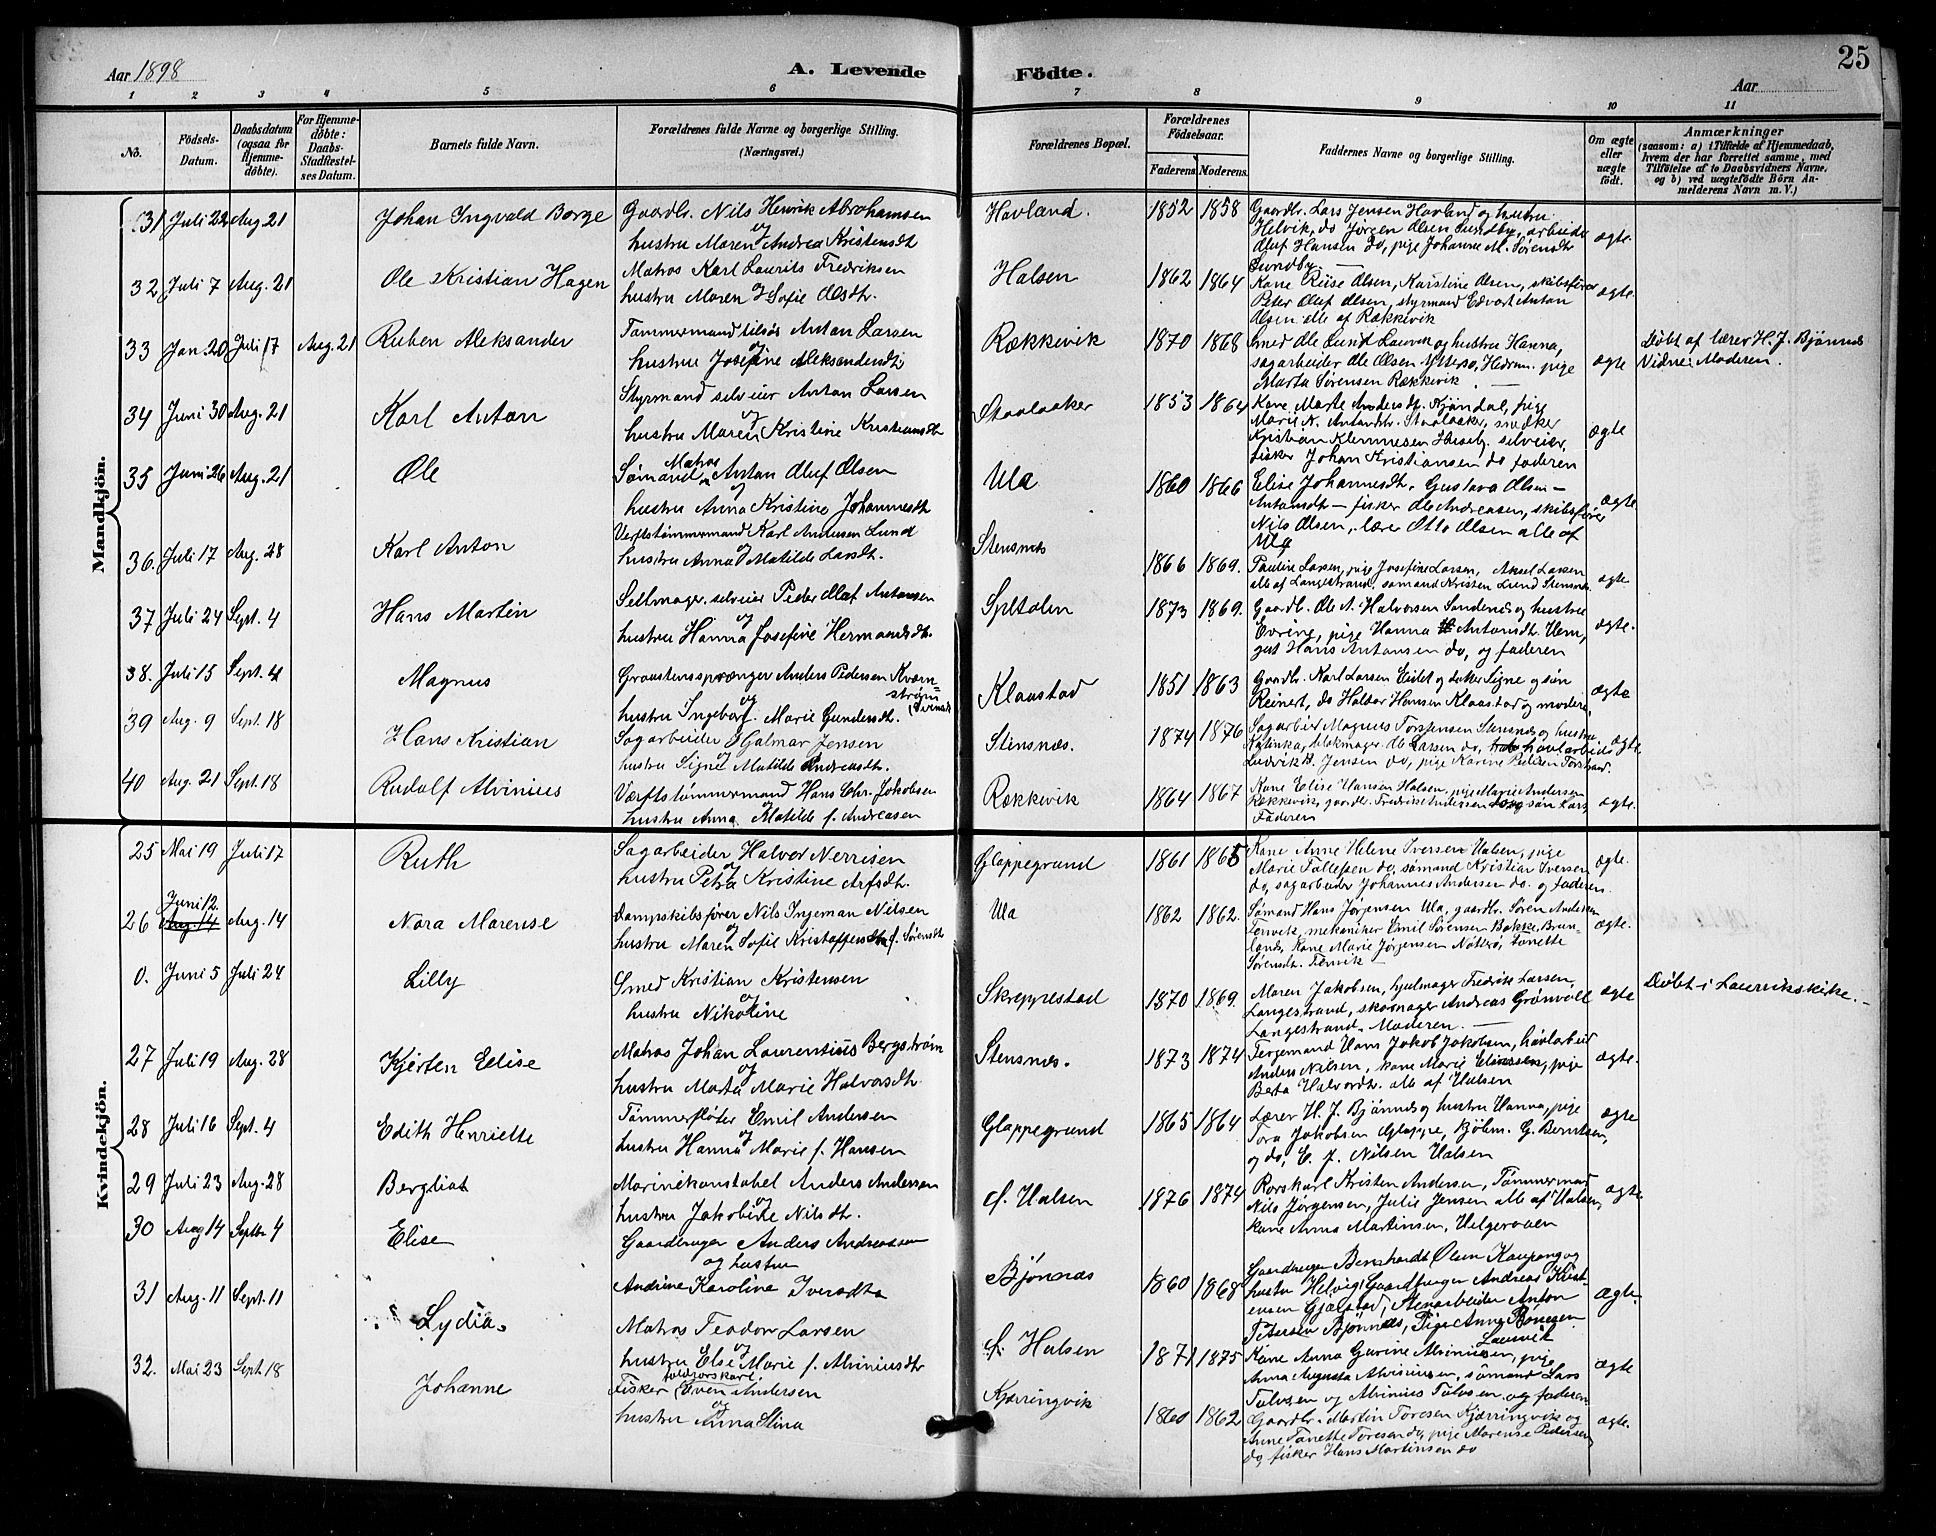 Aar 1898
A. Levende
Födte.
25
Aar
1 2 3 4 5 6 7 8 9 10 11
No.
Födsels-Datum.
Daabsdatum (ogsaa for Hjemme-döbte).
For Hjemme-döbte: Daabs-Stadfæstel-ses Datum.
Barnets fulde Navn.
Forældrenes fulde Navne og borgerlige Stilling. (Næringsvei.)
Forældrenes Bopæl.
Forældrenes Födselsaar.
Faderens
Moderens
Faddernes Navne og borgerlige Stilling.
Om ægte eller uægte födt.
Anmærkninger
(saasom: a) i Tilfælde af Hjemmedaab, hvem der har forrettet samme, med Tilföielse af to Daabsvidners Navne, og b) ved uægtefödte Börn An-melderens Navn m. V.)
Mandkjön.
31 Juli 22 Aug 21 Johan Ingvald Borge
Gaardbr. Nils Henrik Abrahamsen
og
hustru Maren Andrea Kristensdt
Havland. 1852 1858
Gaardbr. Lars Jensen Havland og hustru
Helvik, do Jørgen Olsen Sundby, arbeider
Oluf Hansen do, pige Johanne M. Sørensdt
Sundby —
ægte.
32 Juli 7 Aug. 21 Ole Kristian Hagen
Matros Karl Laurits Fredriksen
og
hustru Maren Sofie Olsdt.
Halsen 1862 1864
Kane Riise Olsen, Karstine Olsen, skibsfører
Peter Oluf Olsen, styrmand Edvart Anton
Olsen alle af Rækkevik
ægte.
33 Jan. 20 Juli 17 Aug. 21 Ruben Aleksander
Tømmermand tilsøs Anton Larsen
og
hustru Josefine Aleksandersdt
Rækkevik 1870 1868
Smed Ole Lund Laurvik og hustru Hanna,
sagarbeider Ole Olsen Yttersø, Hedrum. pige
Marta Sørensen Rækkevik. —
ægte
Døbt af lærer H. J. Bjønnes
Vidne: Moderen.
34 Juni 30 Aug. 21 Karl Anton
Styrmand selveier Anton Larsen
og
hustru Maren Kristine Kristiansdt
Staalaaker 1853 1864
Kane Marte Andersdt. Kjøndal, pige
Marie N. Antonsdt. Staalaaker, snedker
Kristian Klemmesen Huseby, selveier,
fisker Johan Kristiansen do faderen
ægte
35 Juni 26 Aug. 21 Ole
Matros
Sømand Anton Oluf Olsen
og
hustru Anna Kristine Johannesdt
Ula 1860 1866
Elise Johannesdt. Gustava Olsen —
Antonsdt — fisker Ole Andreasen, skibsfører
Nils Olsen, lærer Otto Olsen alle af
Ula
ægte.
36. Juli 17 Aug. 28 Karl Anton
Verftstømmermand Karl Andersen Lund
og
hustru Anna Matilde Larsdt.
Stensnes 1866 1869.
Pauline Larsen, pige Josefine Larsen, Aksel Larsen
alle af Langestrand, sømand Kristen Lund Stensnes
ægte
37 Juli 24 Sept. 4 Hans Martin
Seilmager selveier Peder Olaf Antonsen
og
hustru Hanna Josefine Hermansdt.
1873 1869.
Gaardb. Ole A. Halvorsen Sandenes og hustru
Evrine, pige Hanna Antonsdt. Hem,
gut Hans Antonsen do, og faderen
ægte.
38. Juli 15 Sept. 4 Magnus
Graastenssprænger Anders Pedersen Kværn-
strøm
og
hustru Ingeborg Marie Gundersdt.
Klaastad 1851 1863
Gaardb. Karl Larsen Eidet og datter Signe og søn
Reinert, do Halvor Hansen Klaastad og moderen
ægte
39 Aug. 9 Sept. 18 Hans Kristian
Sagarbeider Hjalmar Jensen
og
hustru Signe Matilde Andreasdt.
Stensnæs. 1874 1876
Sagarbeider Magnus Torstensen Stensnes og hustru
Katinka, blokmager Ole Larsen do, høvlarbeider
Ludvik Jensen do, pige Karine Pedersen Torstrand.
ægte
40 Aug. 21 Sept. 18 Rudolf Alvinius
Værftstømmermand Hans Chr. Jakobsen
og
hustru Anna Matilde f. Andreasen
Rækkevik 1864 1867
Kane Elise Hansen Halsen, pige Marie Andersen
Rækkevik, gaardbr. Fredrik Andersen do og søn Lars,
Faderen
ægte.
Kvindekjön.
25 Mai 19 Juli 17 Ruth
Sagarbeider Halvor Nerrisen
og
hustru Petra Kristine Arfsdt.
Glappegrund 1861 1865
Kane Anne Helene Iversen Halsen, pige
Marie Tollefsen do, sømand Kristian Iversen
do, sagarbeider Johannes Andersen do. og faderen.
ægte.
Juni 12.
26 Aug. 14 Aug. 14 Nora Marense
Dampskibsfører Nils Ingeman Nilsen
og
hustru Maren Sofie Kristoffersen f. Sørensdt
Ula 1862 1862.
Sømand Hans Jørgensen Ula, gaardbr. Søren Andersen
Tenvik, mekaniker Emil Sørensen Bakke, Brun-
lanes, kane Marie Jørgensen Nøtterø, Tonette
Sørensdt. Tenvik —
ægte.
0. Juni 5 Juli 24 Lilly
Smed Kristian Kristensen
og
hustru Nikoline
Skreppestad 1870 1869.
Maren Jakobsen, hjulmager Fredrik Larsen,
Langestrand, skomager Andreas Grønvold
Langestrand. Moderen. —
ægte
Døbt i Laurvikskirke. —
27 Juli 19 Aug. 28 Kjersten Elise
Matros Johan Laurentius Bergstrøm
og
hustru Marta Marie Halvorsdt.
Stensnæs. 1873 1874
Fergemand Hans Jakob Jakobsen, høvlarbeid
Anders Nilsen, kane Marie Elinssen, pige
Berta Halvordt. alle af Halsen
ægte.
28 Juli 16 Sept. 4 Edith Henriette
Tømmerfløter Emil Andersen
og
hustru Hanna Marie f. Hansen
Glappegrund 1865 1864
Lærer H. J. Bjønnes og hustru Hanna, pige
Tora Jakobsen Glappe, Bøhm. G. Berntsen,
og do, C. J. Nilsen Halsen
ægte
29 Juli 23 Aug. 28 Bergliot
Marinekonstabel Anders Andersen
og
hustru Jakobine Nilsdt.
f. Halsen 1876 1874
Rorskarl Kristen Andersen, Tømmermand
Nils Jørgensen, Julie Jensen alle af Halsen,
kane Anna Martinsen, Helgeroaen
ægte
30 Aug 14 Septbr 4 Elise
Gaardbruger Anders Andreassen
og hustru
Andrine Karoline Iversdtr
Bjønnæs 1860 1868
Gaardbruger Bernhardt Olsen Kaupang og
hustru Helvig, Gaardbruger Andreas Krist-
ensen Gjælstad, Stenarbeider Anton
Petersen Bjønnæs, Pige Anna
Laurvik
ægte.
31 Aug. 11 Sept. 11 Lydia.
Matros Teodor Larsen
og
hustru Else Marie f. Alviniusdtr
f. Halsen 1871 1875
Kane Anna Gurine Alvinusen, pige
Anna Augusta Alvinusen, sømand Lars
Tolvsen og Alvinius Tolvsen og faderen
ægte
32. Mai 23 Sept. 18 Johanne
Fisker Sven Andersen
og
hustru Anna Stina
Kjærringvik 1860 1862
Gaardbr. Martin Toresen Kjærringvik og
Anne Tonette Toresen do, pige Marense Pedersen
do, fisker Hans Martinsen do
ægte.